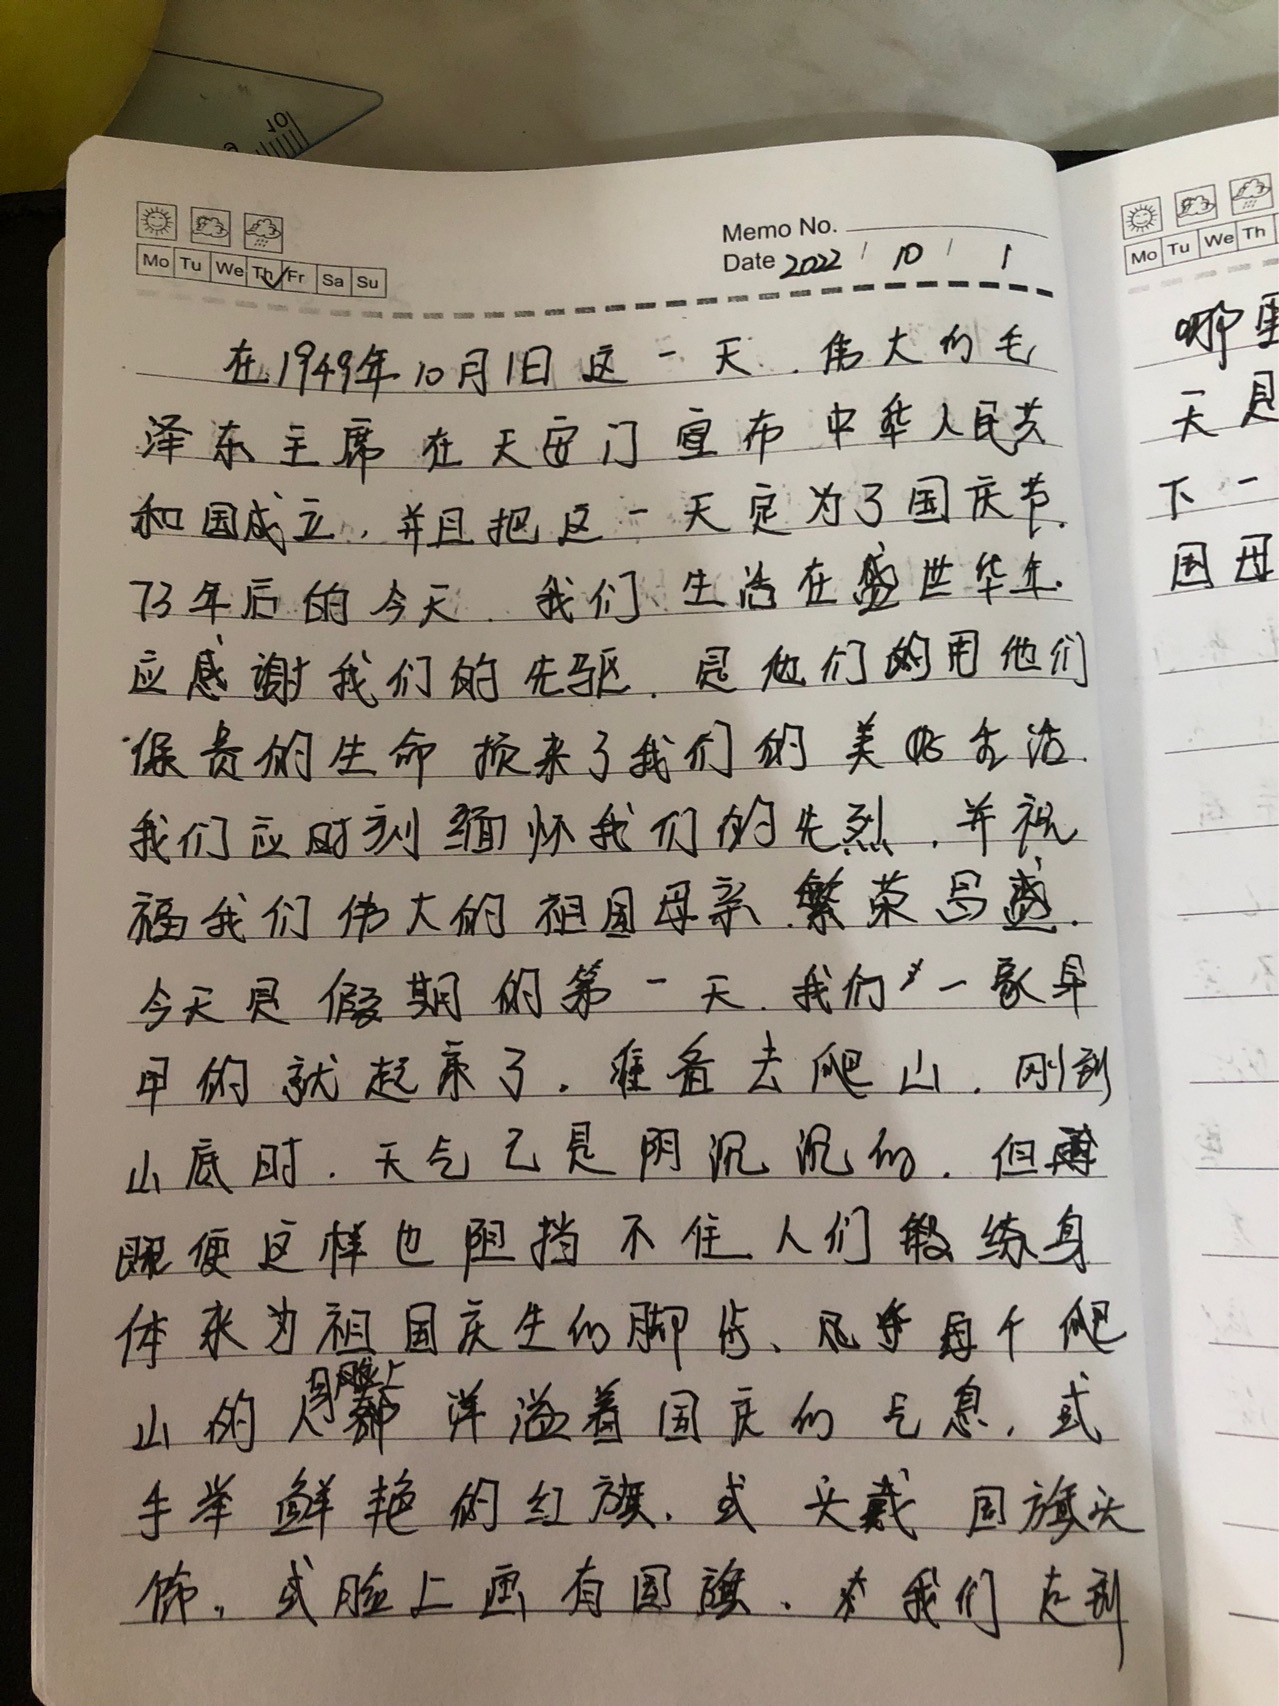 10
Mo Tu We Th Fr Sa Su
Memo No.
Date 2022 / 10 / 1
在1949年10月1日这一天.伟大的毛
泽东主席在天安门宣布中华人民共
和国成立,并且把这一天定为了国庆节.
73年后的今天.我们生活在盛世华年.
应感谢我们的先驱.是他们的用他们
保贵的生命换来了我们的美好生活.
我们应时刻缅怀我们的先烈,并祝
福我们伟大的祖国母亲繁荣昌盛.
今天是假期的第一天.我们一家早
早的就起床了.准备去爬山.刚到
山底时.天气已是阴沉沉的.但
既便这样也阻挡不住人们锻练身
体来为祖国庆生的脚步、几乎每个爬
山的人身上脸上都洋溢着国庆的气息.或
手举鲜艳的红旗.或头戴国旗头
饰,或脸上画有国旗、我们走到
Mo Tu We Th
哪里
天是
下一
国母